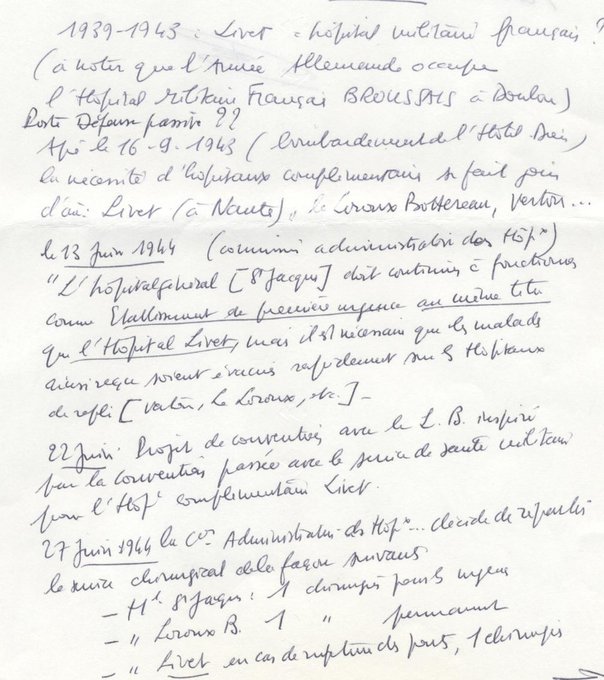 1939-1943 : Livet = hôpital militaire français ?
(à noter que l'Armée Allemande occupe
l'Hopital Militaire Français BROUSSAIS à Doulon)
Poste Défense passive ??
Après le 16-9-1943 (bombardement de l'Hotel Dieu)
la nécessité d'hopitaux complémentaires se fait
d'où : Livet (à Nantes), le Loroux Bottereau, Vertou...
le 13 Juin 1944 (commission administrative des Hôpx)
"L'hôpital général [St Jacques] doit continuer à fonctionner
comme Etablissement de première urgence au même titre
que l'Hopital Livet, mais il est nécessaire que les malades
ainsi reçus soient évacués rapidement sur les Hôpitaux
de repli [Vertou, Le Loroux, etc.] -
22 Juin. Projet de convention avec le L.B. inspiré
par la convention passée avec le service de santé militaire
pour l'Hopl complémentaire Livet.
27 Juin 1944 la Con Administrative des Hopx... décide de répartir
le service chirurgical de la façon suivante
- Hl St Jacques : 1 chirurgien pour les urgences
- " Loroux B. 1 " permanent
- " Livet en cas de rupture des ponts, 1 chirurgien